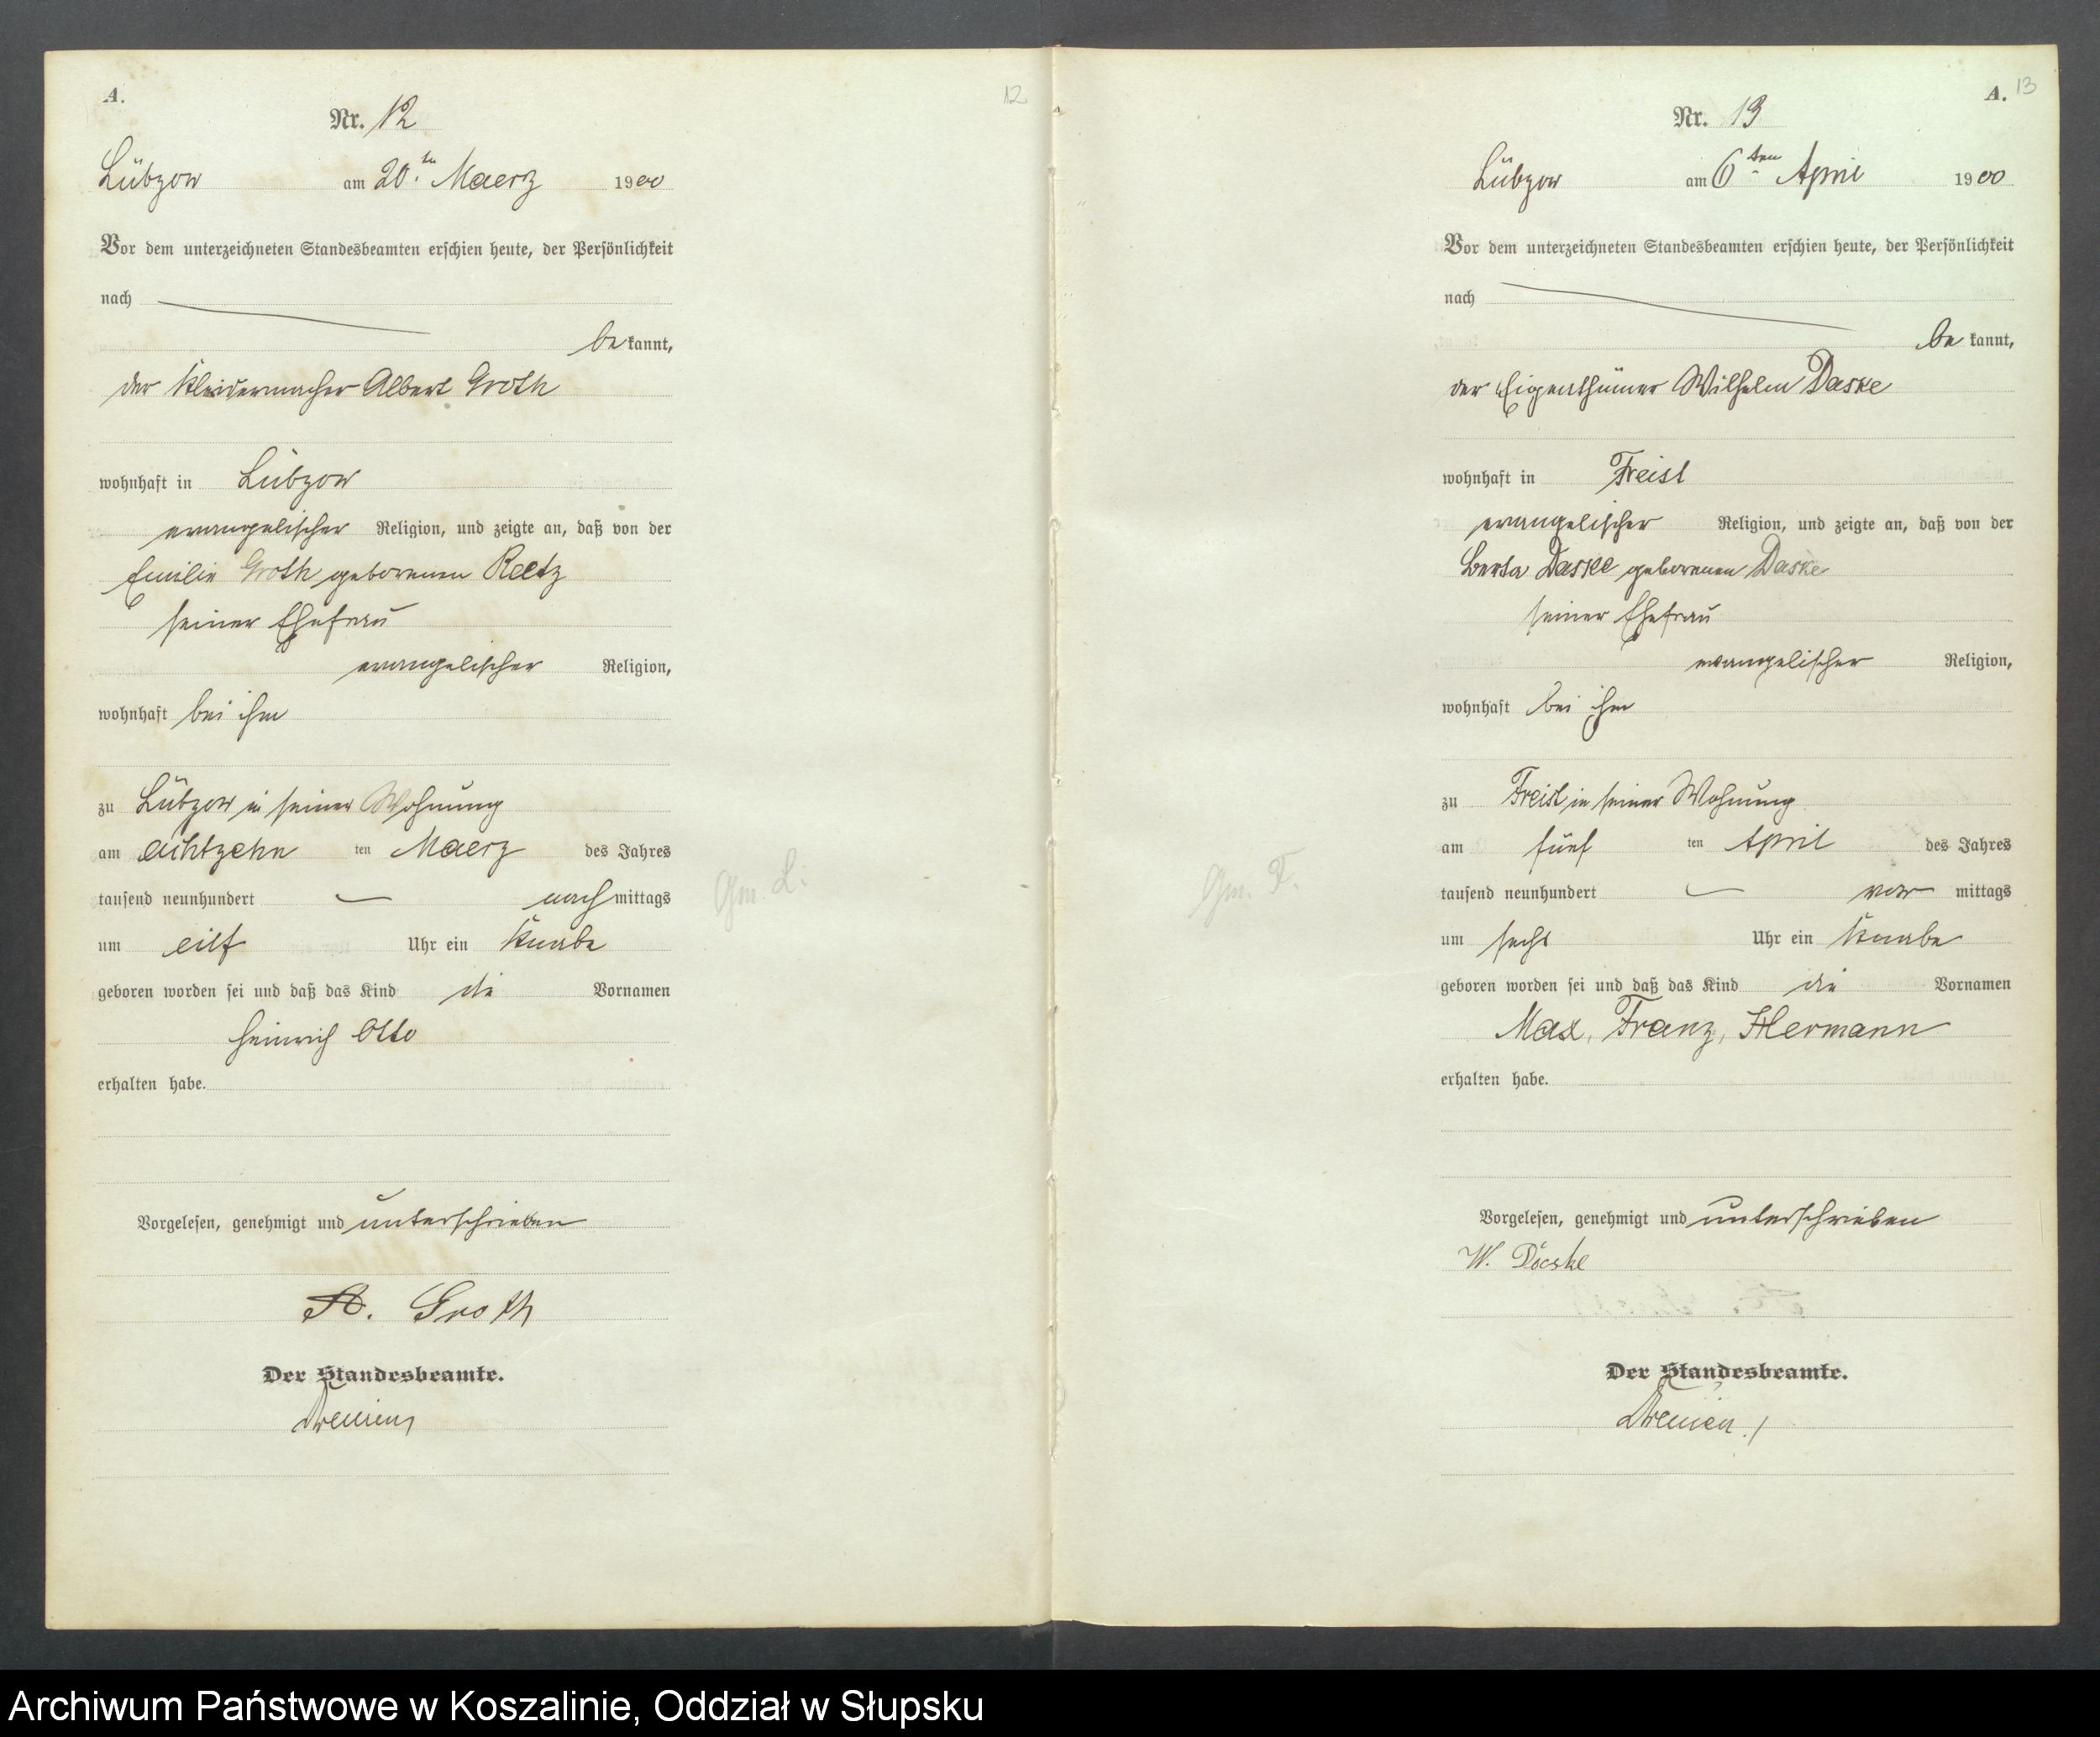 A.
12
Nr. 12
Lübzow am 20.ten Maerz 1900
Vor dem unterzeichneten Standesbeamten erschien heute, der Persönlichkeit
nach
bekannt,
der Kleidermacher Albert Groth
wohnhaft in Lübzow
evangelischer Religion, und zeigte an, daß von der
Emilie Groth geborenen Reetz
seiner Ehefrau
evangelischer Religion,
wohnhaft bei ihm
zu Lübzow in seiner Wohnung
am achtzehn ten Maerz des Jahres
tausend neunhundert — nachmittags
um eilf Uhr ein Knabe
geboren worden sei und daß das Kind die Vornamen
Heinrich Otto
erhalten habe.
Vorgelesen, genehmigt und unterschrieben
A. Groth
Der Standesbeamte.
Gm. L.
A. 13
Nr. 13
Lübzow am 6ten April 1900
Vor dem unterzeichneten Standesbeamten erschien heute, der Persönlichkeit
nach
bekannt,
der Eigenthümer Wilhelm Daske
wohnhaft in Freist
evangelischer Religion, und zeigte an, daß von der
Berta Daske geborenen Daske
seiner Ehefrau
evangelischer Religion,
wohnhaft bei ihm
zu Freist in seiner Wohnung
am fünf ten April des Jahres
tausend neunhundert — vor mittags
um sechs Uhr ein Knabe
geboren worden sei und daß das Kind die Vornamen
Max, Franz, Hermann
erhalten habe.
Vorgelesen, genehmigt und unterschrieben
W. Däske
Der Standesbeamte.
Gm. F.
Archiwum Państwowe w Koszalinie, Oddział w Słupsku